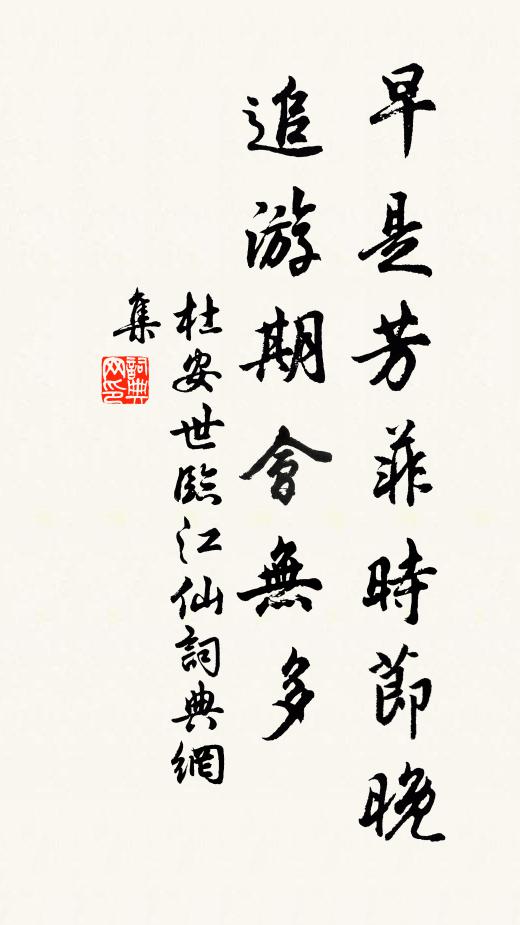 早是芳菲時節晚
追游期會無多
杜安世臨江仙詞典網
集
詞典网印